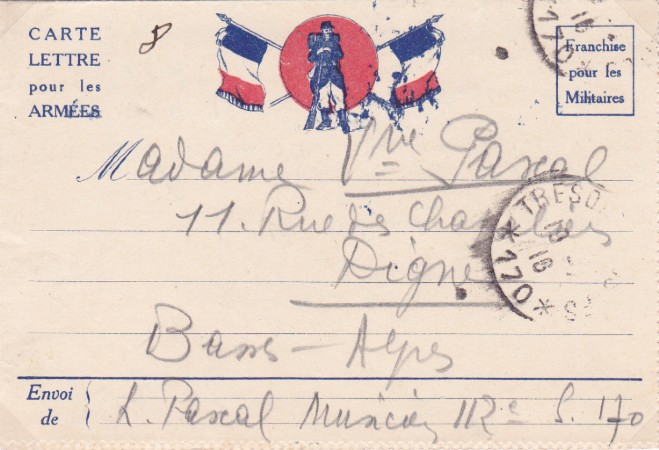 CARTE
LETTRE
pour les
ARMÉES
8
Franchise
pour les
Militaires
Madame Vve Pascal
11. Rue des Chapeliers
Digne
Basses-Alpes
* TRESO
* 140 *
16
Envoi
de
L. Pascal Musicien 112e S. 140